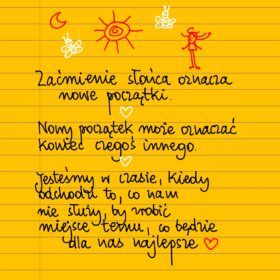 Zaćmienie słońca oznacza
nowe początki.
Nowy początek może oznaczać
koniec czegoś innego.
Jesteśmy w czasie, kiedy
odchodzi to, co nam
nie służy, by zrobić
miejsce temu, co będzie
dla nas najlepsze